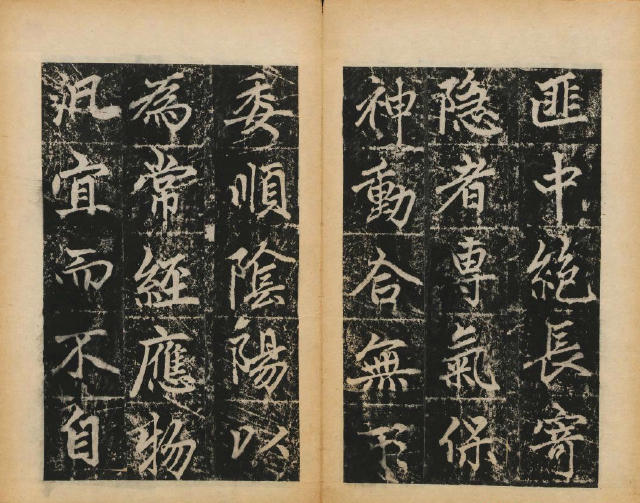 匪中絶長寄
隐者専氣保
神動合無
委順陰陽以
為常經應物
汎宜而不自